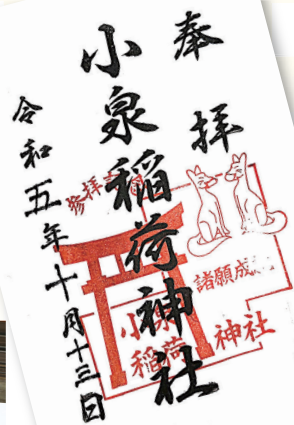 奉拝
小泉稲荷神社
令和五年十月十三日
参拝
諸願成
小泉
稲荷
神社